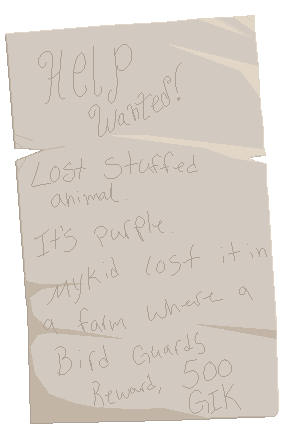 Help
Wanted!
Lost Stuffed
animal.
It's purple.
My Kid lost it in
a farm where a
Bird Guards
Reward, 500
GIK